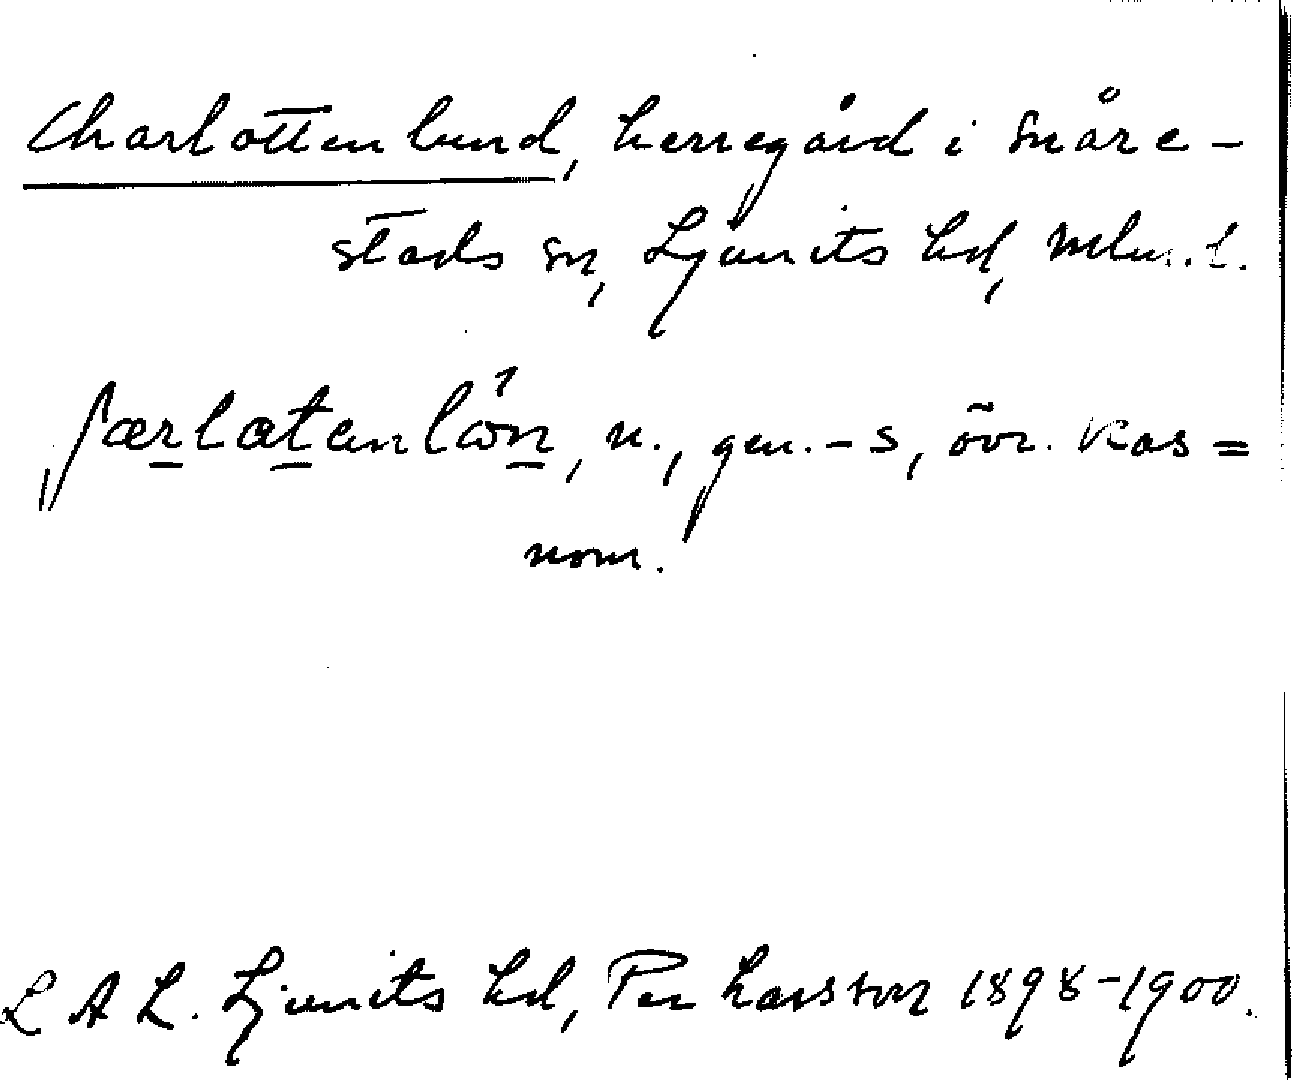 Charlottenlund, herregård i Snåre-
stads sn, Ljunits hd, Mlm. l.
n., gen. -s, övr. kas =
nom.
LAL. Ljunits hd, Per Larsson 1898-1900.